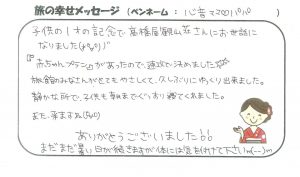 旅の幸せメッセージ (ペンネーム: 心音ママ♡パパ♡ )
子供の1才の記念で、高橋屋観山荘さんにお世話に
なりました(^o^)♪
『赤ちゃんプラン』があったので、速攻で決めました!!
旅館のみなさんがとてもやさしくて、久しぶりにゆっくり出来ました。
静かな所で、子供も朝までぐっすり寝てくれました。
また、来ますね(^o^)
ありがとうございました!!
まだまだ暑い日が続きますが体には気を付けて下さいm(__)m